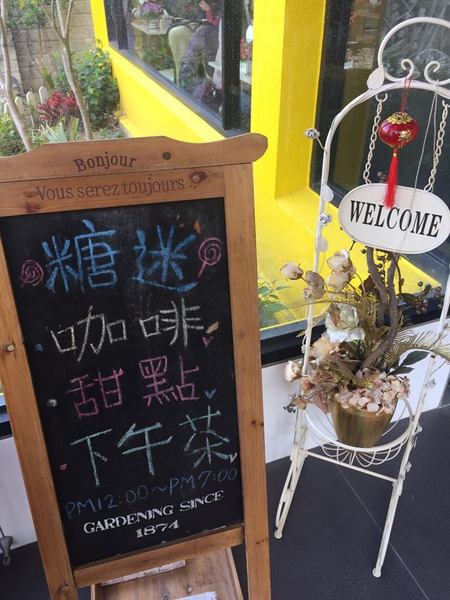 Bonjour
Vous serez toujours
糖迷
咖啡
甜點
下午茶
PM12:00~PM7:00
GARDENING SINCE
1874
WELCOME